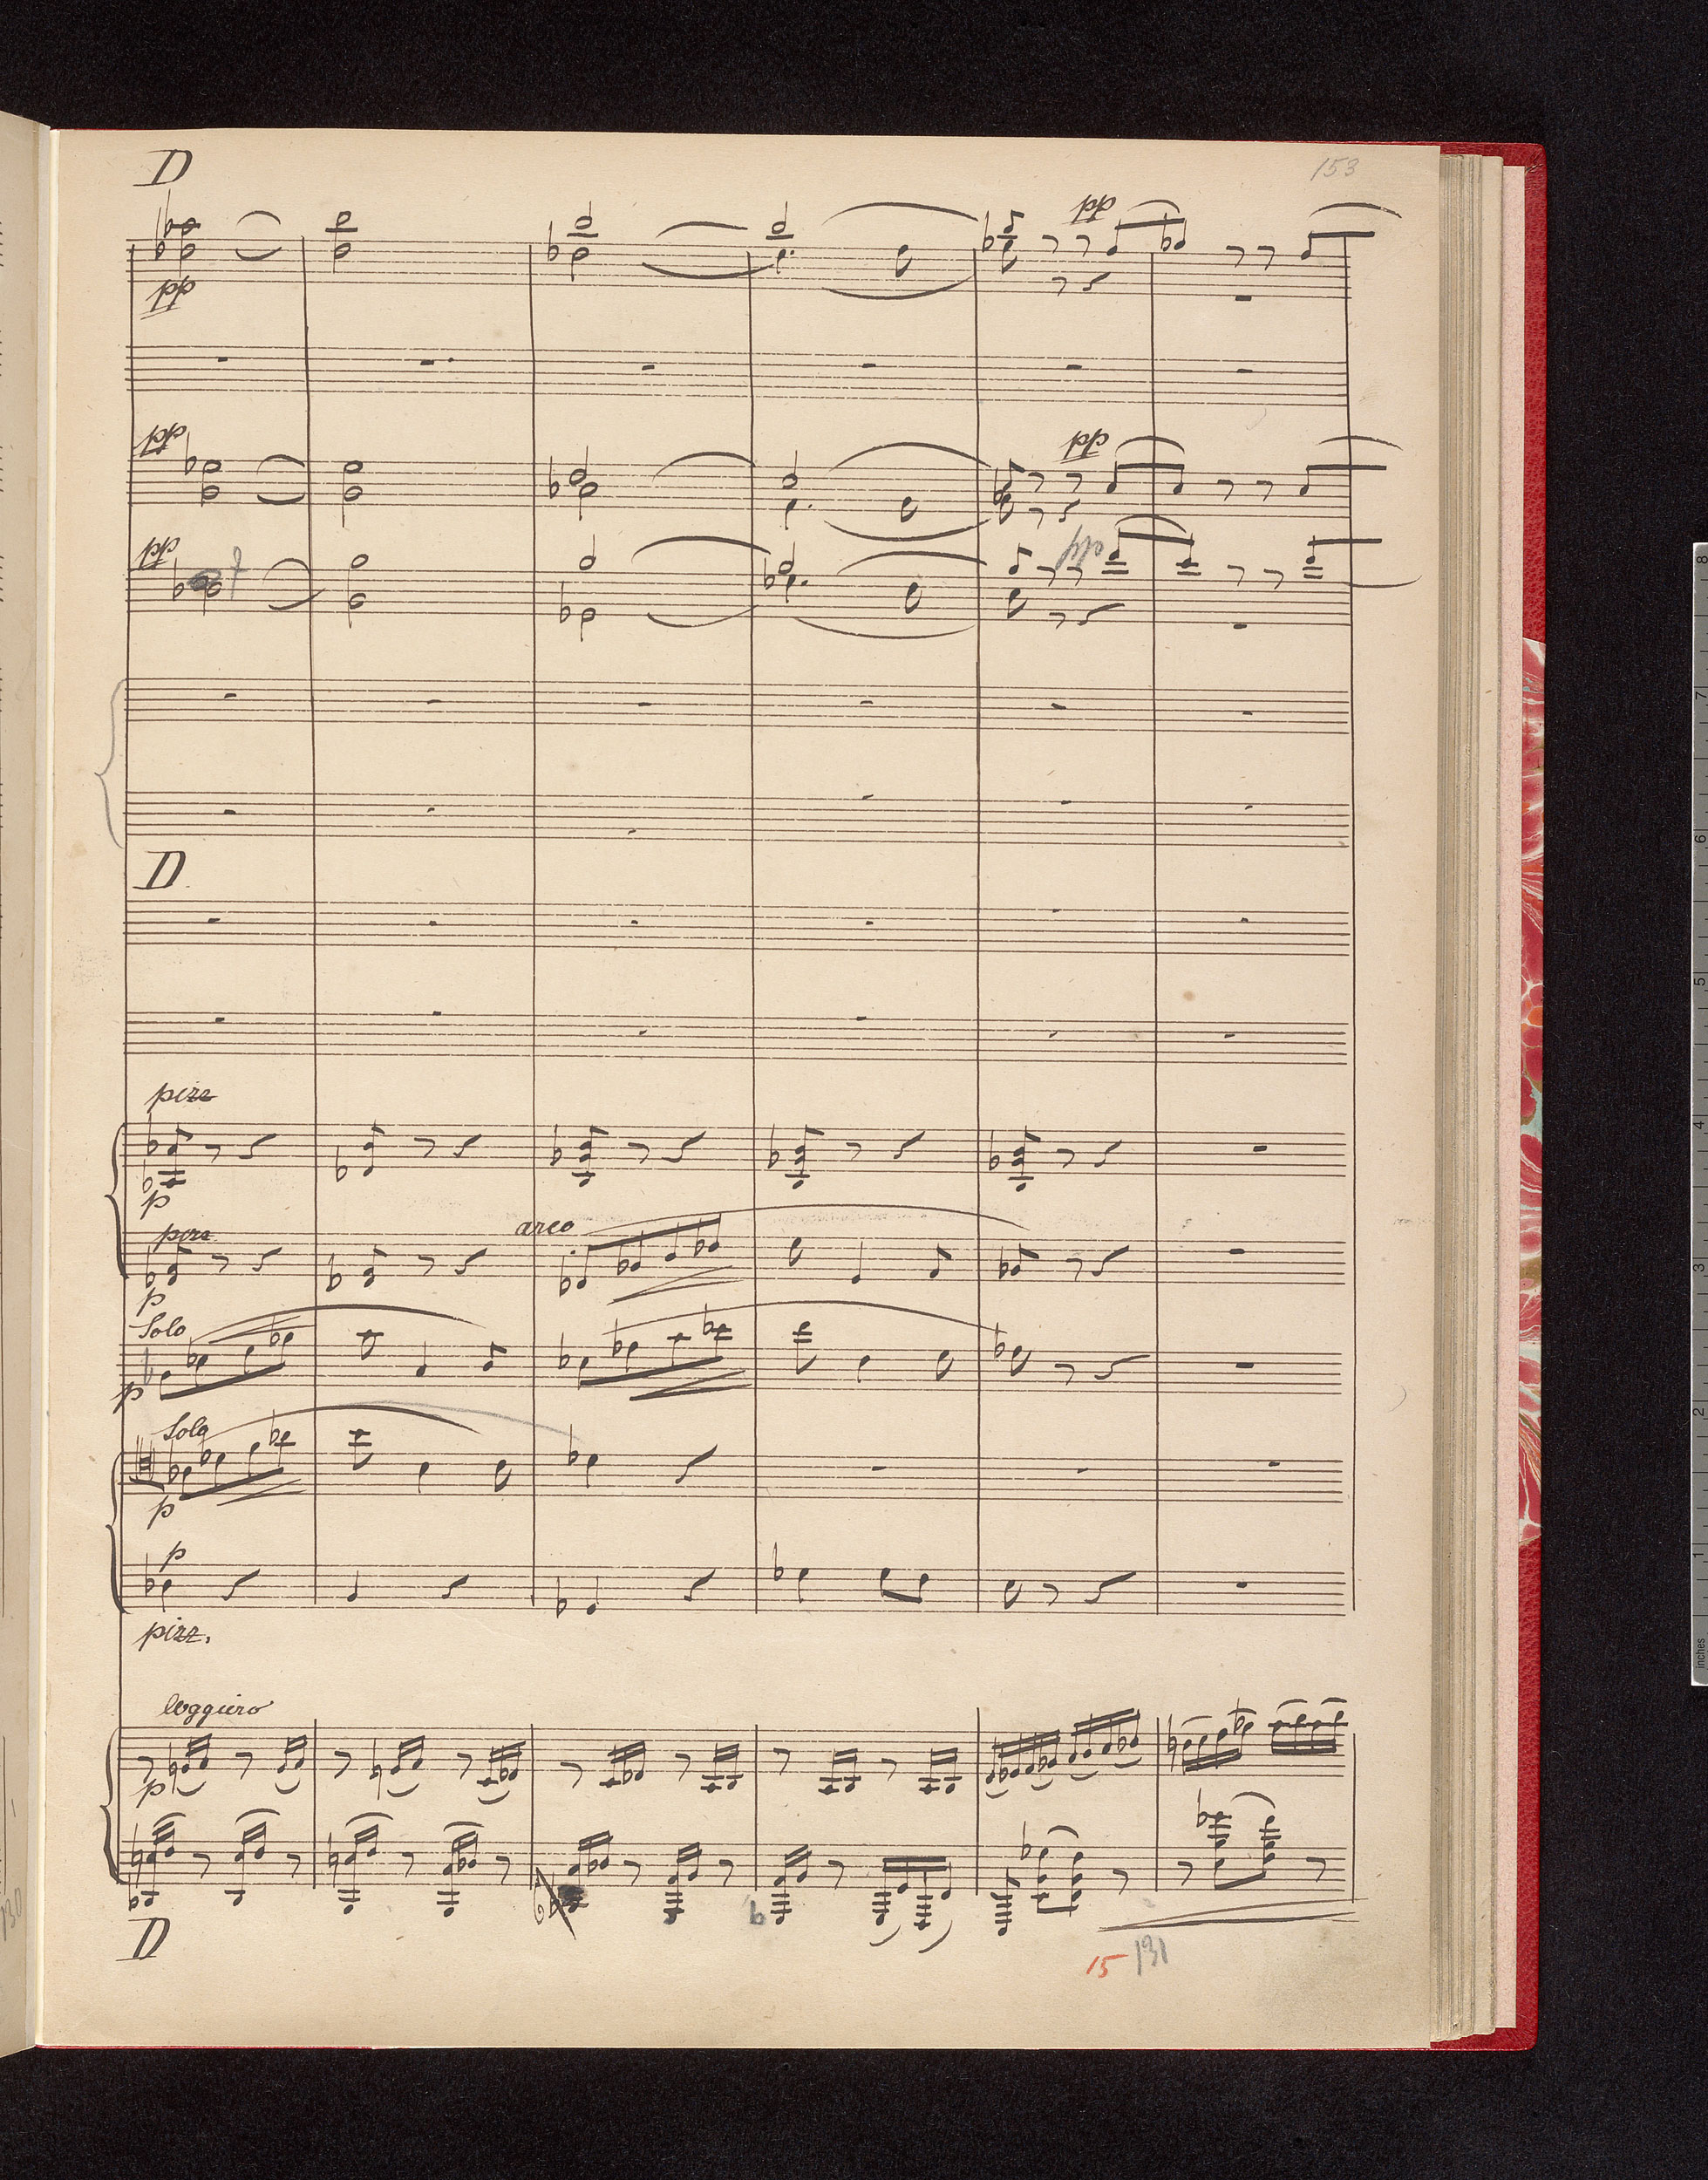 D
153
pp
pp
pp
pp
pp
D
pizz
p
pizz
arco
p
Solo
p
Solo
p
p
pizz.
leggiero
p
D
15 131
8
7
6
5
4
3
2
1
inches